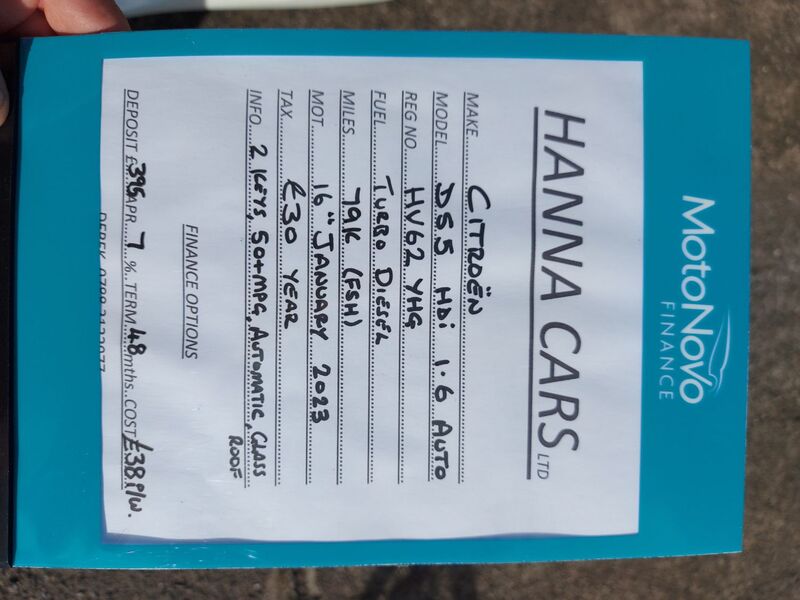 MotoNovo
FINANCE
HANNA CARS LTD
MAKE CITROËN
MODEL DS5 HDi 1.6 AUTO
REG NO. HV62 YHG
FUEL TURBO DIESEL
MILES 79K (FSH)
MOT 16TH JANUARY 2023
TAX £30 YEAR
INFO 2 KEYS, 50+MPG, AUTOMATIC, GLASS
ROOF
FINANCE OPTIONS
DEPOSIT £395 APR 7 % TERM 48 mths. COST £38 P/W.